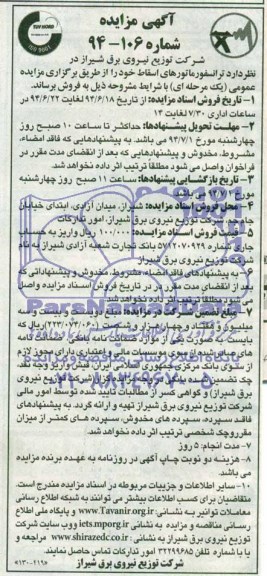 آگهی مزایده
شماره ۱۰۶-۹۴
شرکت توزیع نیروی برق شیراز در
نظر دارد ترانسفورماتورهای اسقاط خود را از طریق برگزاری مزایده
عمومی (یک مرحله ای) با شرایط مشروحه ذیل به فروش برساند.
۱- تاریخ فروش اسناد مزایده: از تاریخ ۹۴/۶/۱۸ لغایت ۹۴/۶/۲۲ در
ساعات اداری ۷/۳۰ لغایت ۱۴
۲- مهلت تحویل پیشنهادها: حداکثر تا ساعت ۱۰ صبح روز
چهارشنبه مورخ ۹۴/۷/۱ می باشد. به پیشنهادهایی که فاقد امضاء،
مشروط، مخدوش و پیشنهادهایی که بعد از انقضای مدت مقرر در
فراخوان واصل می شود مطلقا ترتیب اثر داده نخواهد شد.
۳- تاریخ بازگشایی پیشنهادها: ساعت ۱۱ صبح روز چهارشنبه
مورخ ۹۴/۷/۱ می باشد.
۴- محل فروش اسناد مزایده: شیراز، میدان آزادی، ابتدای خیابان
شرکت توزیع نیروی برق شیراز، امور تدارکات
۵- قیمت فروش اسناد مزایده: ۱۰۰/۰۰۰ ریال واریز به حساب
جاری شماره ۵۷۱۲۰۷۰۹۲۹ بانک تجارت شعبه آزادی شیراز به نام
شرکت توزیع نیروی برق شیراز
۶- به پیشنهادهای فاقد امضاء، مشروط، مخدوش و پیشنهاداتی که
بعد از انقضای مدت مقرر در تاریخ فروش اسناد مزایده واصل
می شود مطلقا ترتیب اثر داده نخواهد شد.
۷- مبلغ تضمین شرکت در مزایده: مبلغ دویست و بیست و سه
ریال که
بایست به صورت یکی از موارد ضمانت نامه بانکی، ضمانت نامه
از سوی بانک مرکزی جمهوری اسلامی ایران، فیش واریز وجه نقد،
چک تضمین شده
برق شیراز) و گواهی کسر از مطالبات تایید شده توسط امور مالی
شرکت توزیع نیروی برق شیراز تهیه و ارائه گردد. به پیشنهادهای
فاقد سپرده، سپرده های مخدوش، سپرده های کمتر از میزان
مقرر و چک شخصی ترتیب اثر داده نخواهد شد.
۷- مدت انجام: ۵ روز
۸- هزینه دو نوبت چاپ آگهی در روزنامه به عهده برنده مزایده
می باشد.
۱۰- سایر اطلاعات و جزییات مربوطه در اسناد مزایده مندرج است.
متقاضیان برای کسب اطلاعات بیشتر می توانند به شبکه اطلاع رسانی
معاملات توانیر به نشانی www.Tavanir.org.ir و پایگاه ملی اطلاع
رسانی مناقصه و مزایده به نشانی iets.mporg.ir و وب سایت شرکت
توزیع نیروی برق شیراز به نشانی www.shirazedc.co.ir مراجعه و
یا با شماره تلفن ۳۲۲۹۹۶۸۵ امور تدارکات تماس حاصل نمایند.
شرکت توزیع نیروی برق شیراز